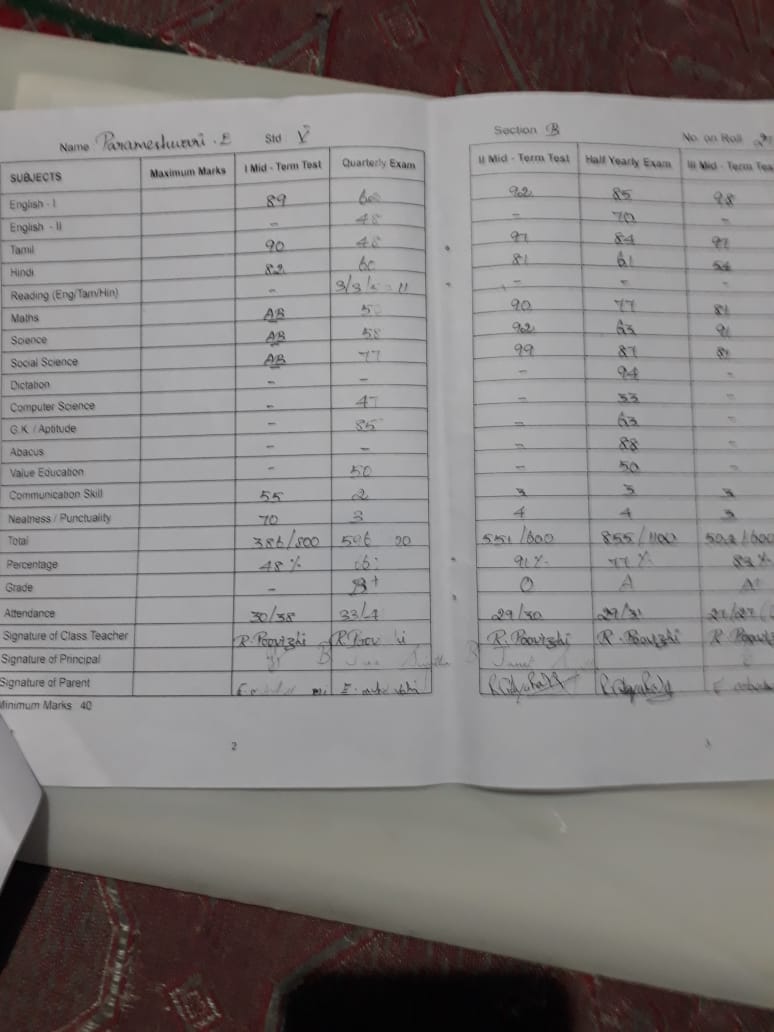 Name Parameshwari . E Std V Section B No. on Roll
SUBJECTS Maximum Marks I Mid - Term Test Quarterly Exam II Mid - Term Test Half Yearly Exam III Mid - Term
English - I 89 92 85 98
English - II - 48 - 70 -
Tamil 90 48 97 84 97
Hindi 82 60 81 61 54
Reading (Eng/Tam/Hin) - - - -
Maths AB 90 77 81
Science AB 58 92 63 91
Social Science AB 77 99 87
Dictation - - - 94 -
Computer Science - 47 - 33 -
G.K. / Aptitude - 85 - 63 -
Abacus - - - 88 -
Value Education - 50 - 50 -
Communication Skill 55 2 3 3 3
Neatness / Punctuality 70 3 4 4 3
Total 386/800 551/600 855/1100
Percentage 48 % 91 % 77 %
Grade - B+ O A
Attendance 30/38 29/30 29/31
Signature of Class Teacher R. Poovizhi R. Poovizhi R. Poovizhi R.
Signature of Principal
Signature of Parent
Minimum Marks 40
2